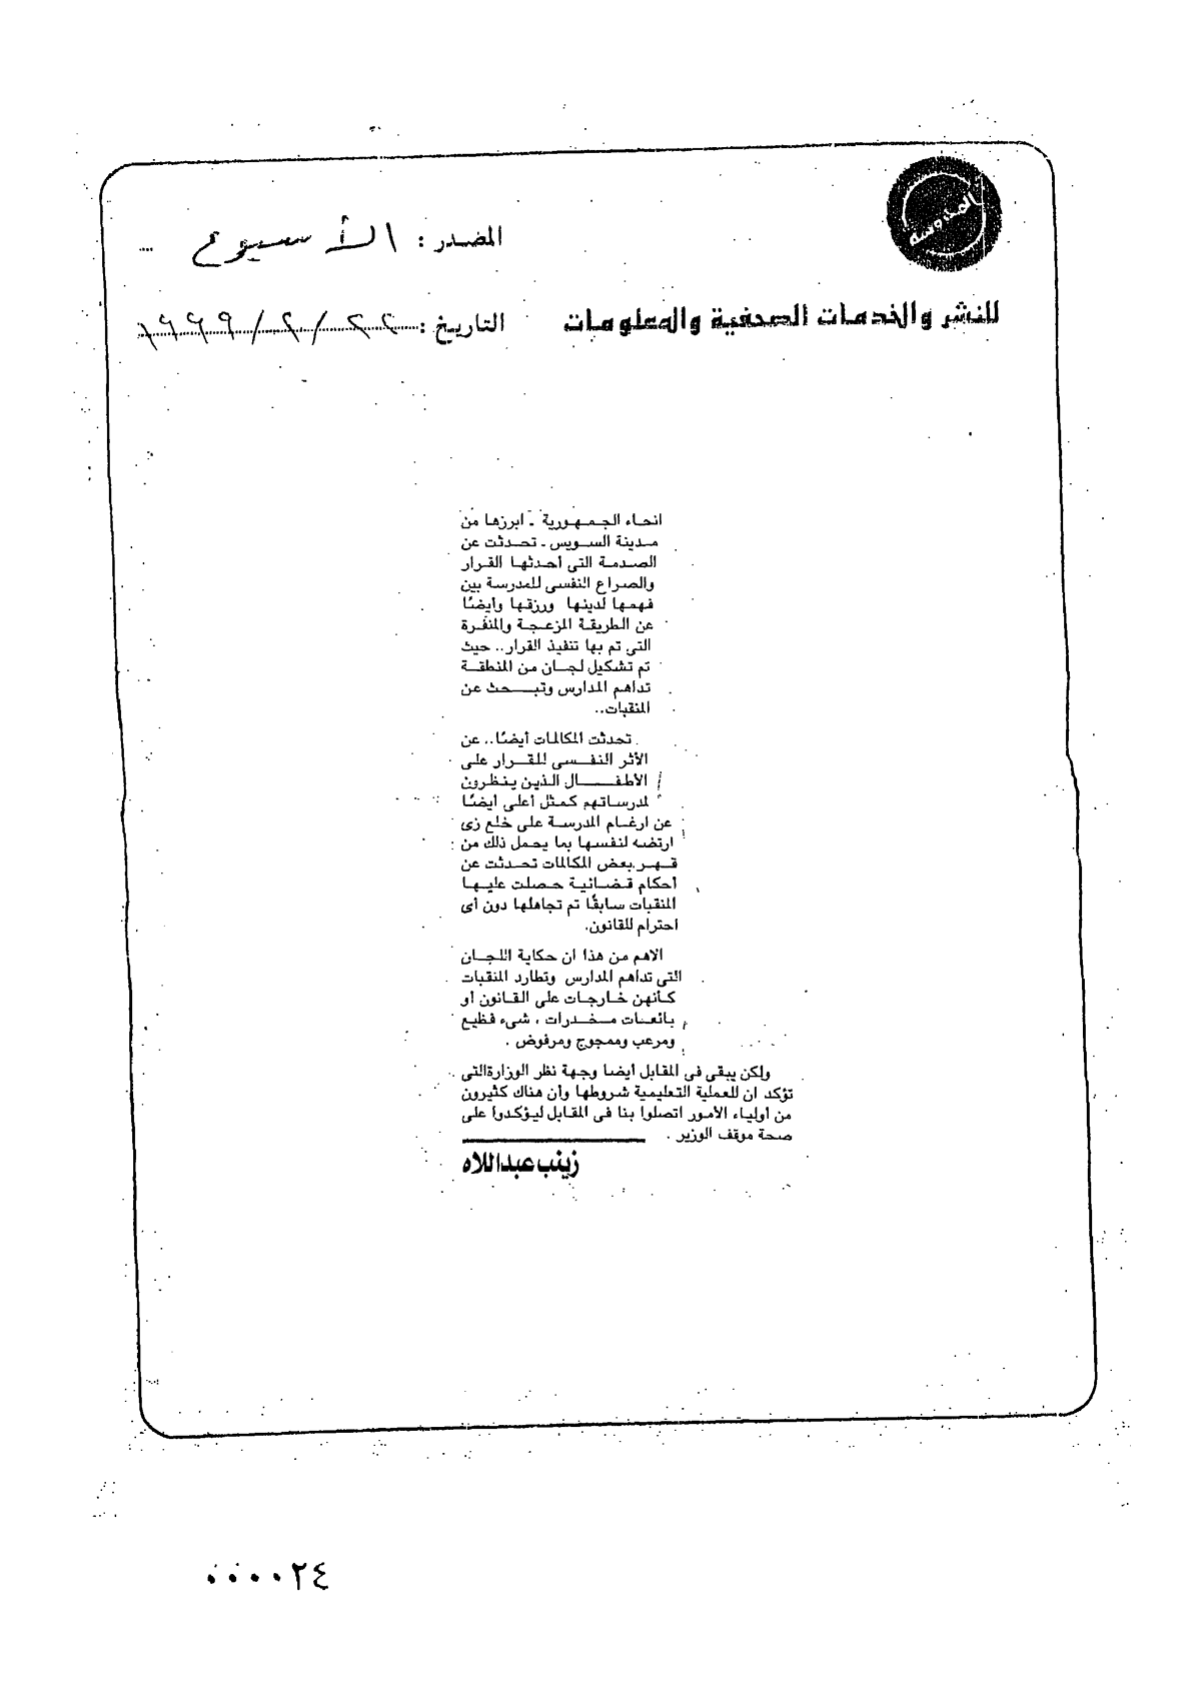 المدوسة
المصدر : الأسبوع
للنشر والخدمات الصحفية والمعلومات
التاريخ : ٢٢/٢/١٩٩٩
انحاء الجمهورية - ابرزها من
مدينة السويس - تحدثت عن
الصدمة التى أحدثها القرار
والصراع النفسى للمدرسة بين
فهمها لدينها ورزقها وأيضًا
عن الطريقة المزعجة والمنفرة
التى تم بها تنفيذ القرار.. حيث
تم تشكيل لجان من المنطقة
تداهم المدارس وتبحث عن
المنقبات..
تحدثت المكالمات أيضًا.. عن
الأثر النفسى للقرار على
الأطفال الذين ينظرون
لمدرساتهم كمثل أعلى أيضًا
عن ارغام المدرسة على خلع زى
ارتضه لنفسها بما يحمل ذلك من
قهر بعض المكالمات تحدثت عن
أحكام قضائية حصلت عليها
المنقبات سابقًا تم تجاهلها دون أى
احترام للقانون.
الاهم من هذا ان حكاية اللجان
التى تداهم المدارس وتطارد المنقبات
كأنهن خارجات على القانون أو
بائعات مخدرات ، شىء فظيع
ومرعب وممجوج ومرفوض .
ولكن يبقى فى المقابل أيضا وجهة نظر الوزارة التى
تؤكد ان للعملية التعليمية شروطها وأن هناك كثيرون
من أولياء الأمور اتصلوا بنا فى المقابل ليؤكدوا على
صحة موقف الوزير .
زينب عبداللاه
٠٠٠٠٢٤